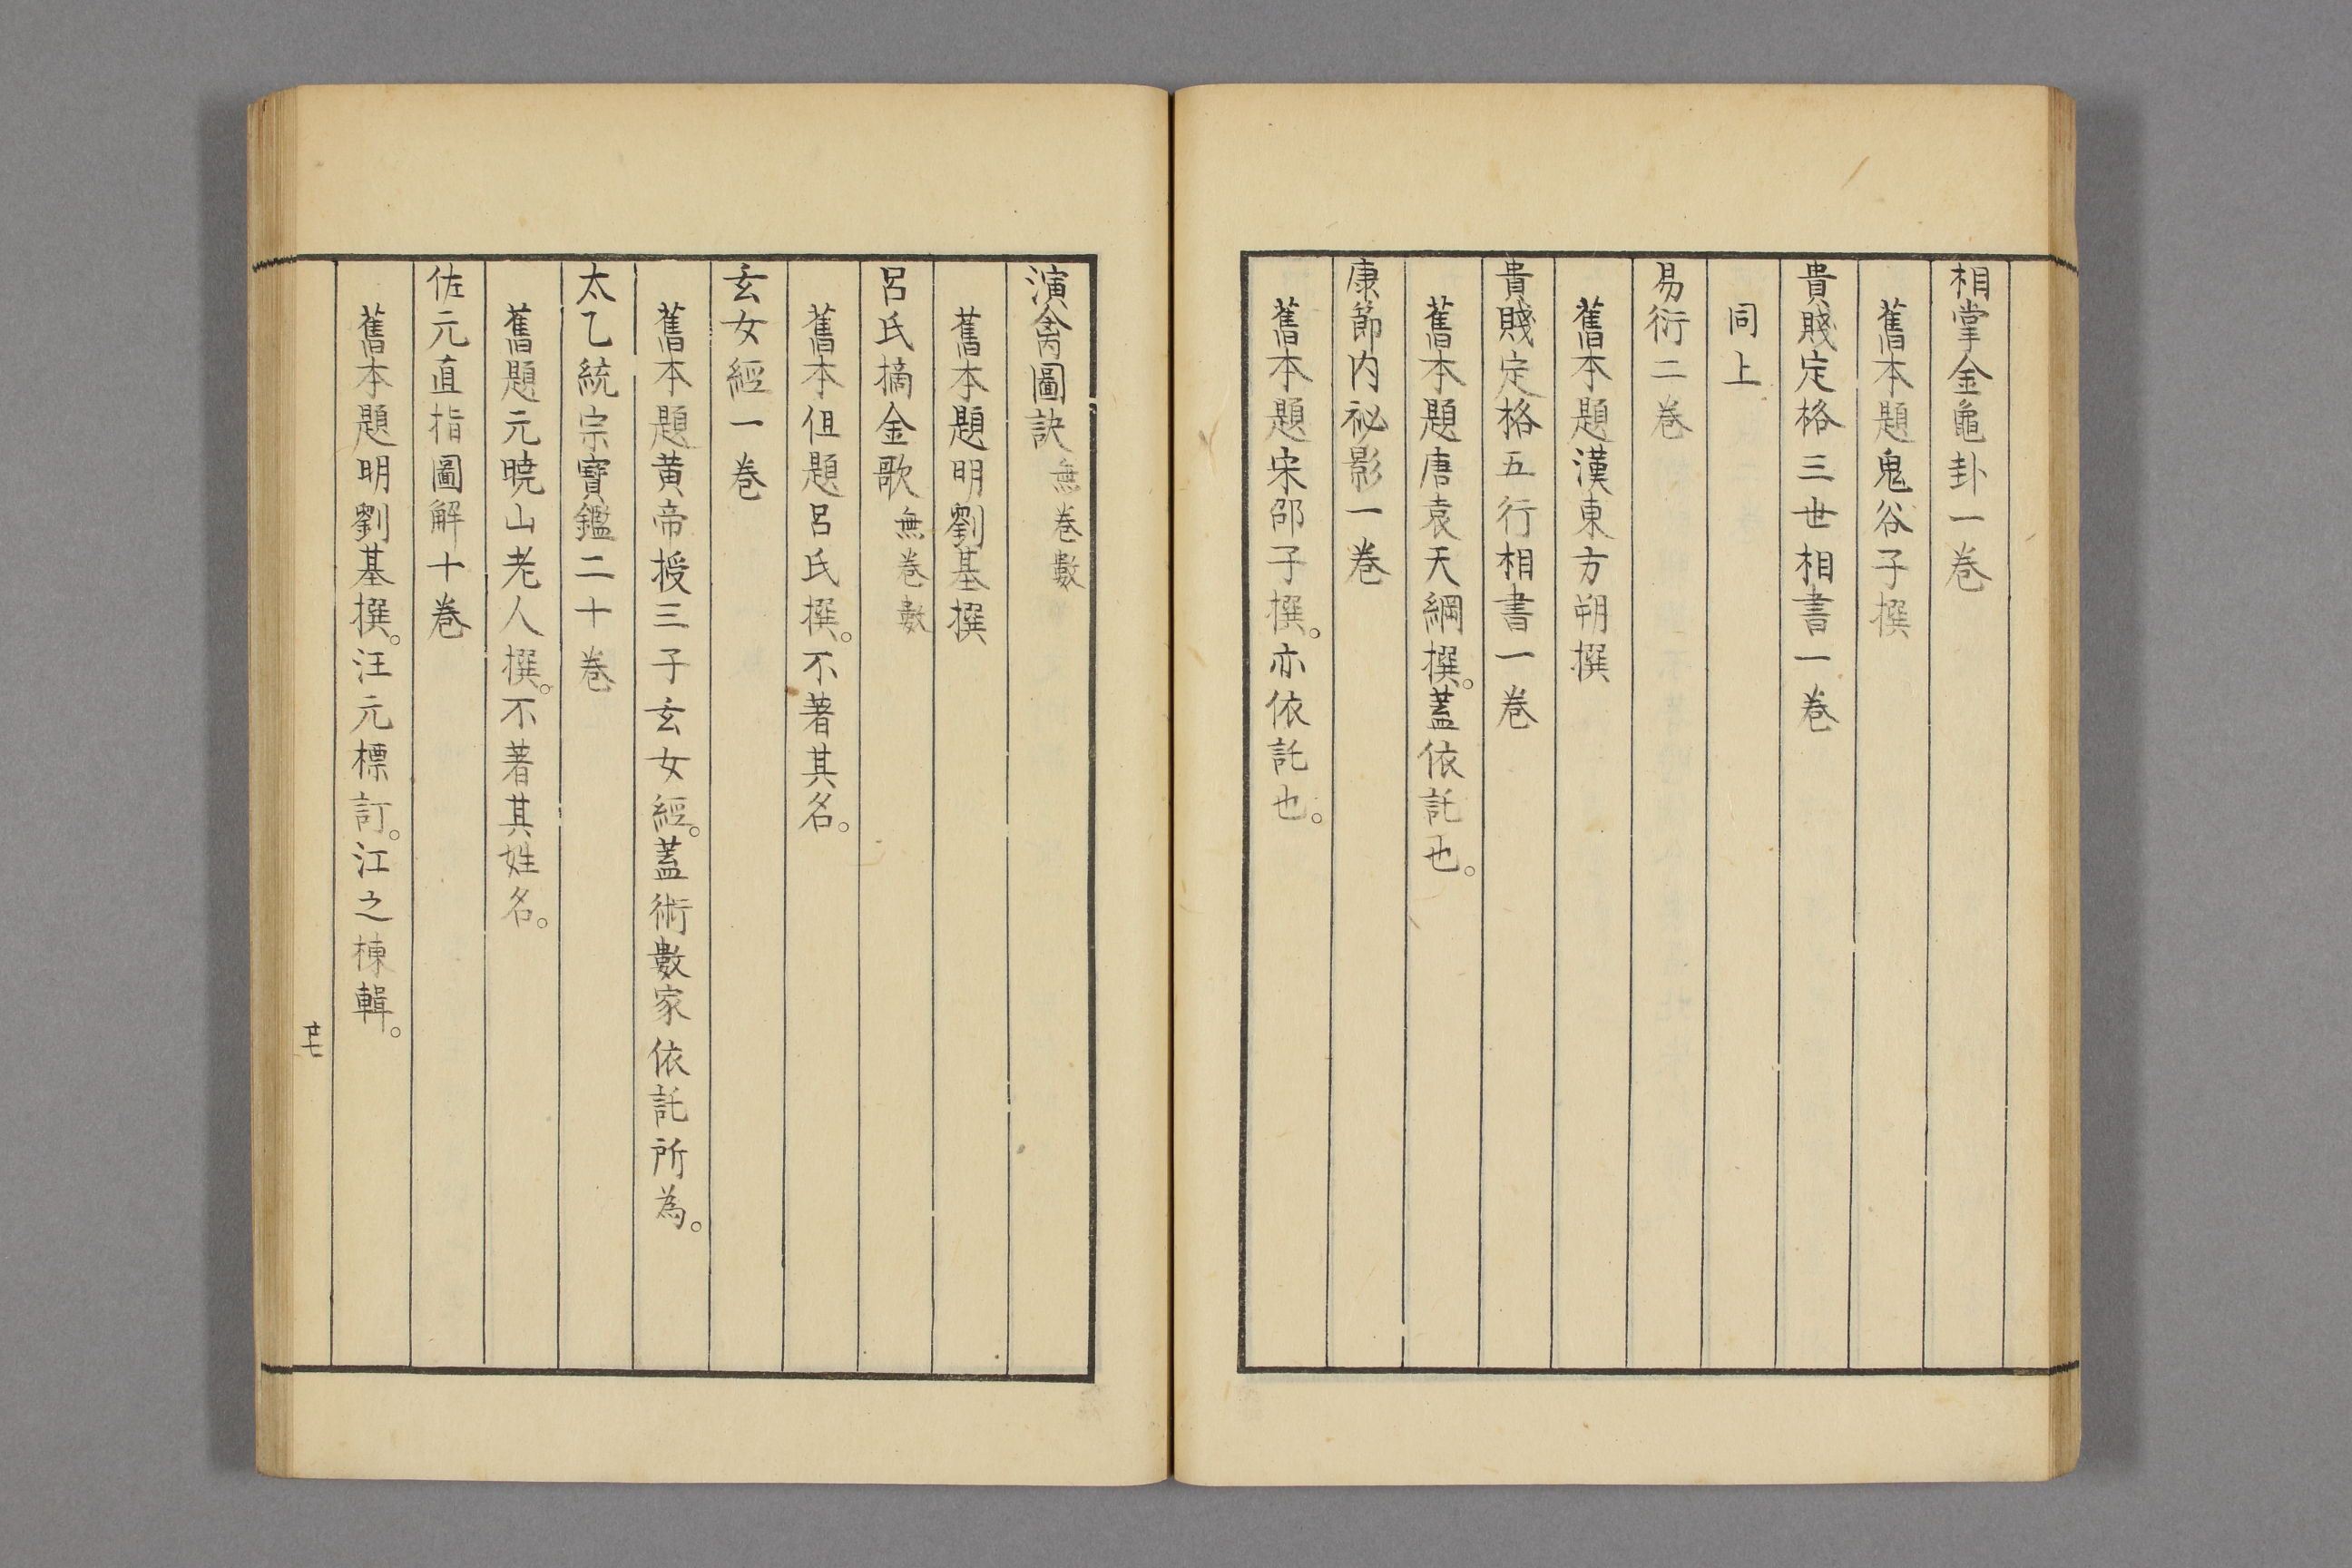 相掌金龜卦一卷
舊本題鬼谷子撰
貴賤定格三世相書一卷
同上
易衍二卷
舊本題漢東方朔撰
貴賤定格五行相書一卷
舊本題唐袁天綱撰。蓋依託也。
康節内祕影一卷
舊本題宋邵子撰。亦依託也。
演禽圖訣無卷數
舊本題明劉基撰
呂氏摘金歌無卷數
舊本但題呂氏撰。不著其名。
玄女經一卷
舊本題黄帝授三子玄女經。蓋術數家依託所為。
太乙統宗寶鑑二十卷
舊題元曉山老人撰。不著其姓名。
佐元直指圖解十卷
舊本題明劉基撰。汪元標訂。江之棟輯。